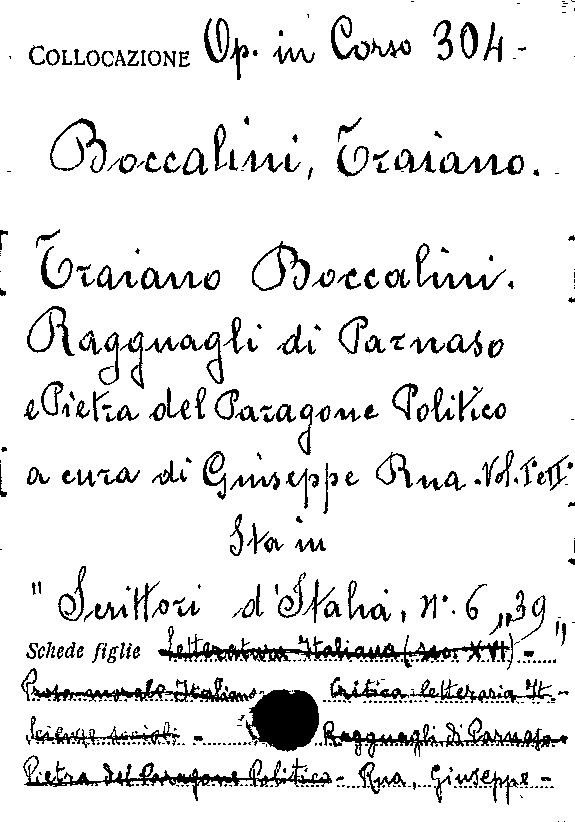 COLLOCAZIONE Op. in Corso 304-
Boccalini, Traiano.
Traiano Boccalini.
Ragguagli di Parnaso
e Pietra del Paragone Politico
a cura di Giuseppe Rua. Vol. I° e II°
Sta in
"Scrittori d'Italia, n.° 6, 39"
Schede figlie Letteratura Italiana (sec. XVI) -
Prosa morale Italiana - Critica letteraria It. -
Scienze sociali - Ragguagli di Parnaso -
Pietra del Paragone Politico - Rua, Giuseppe -